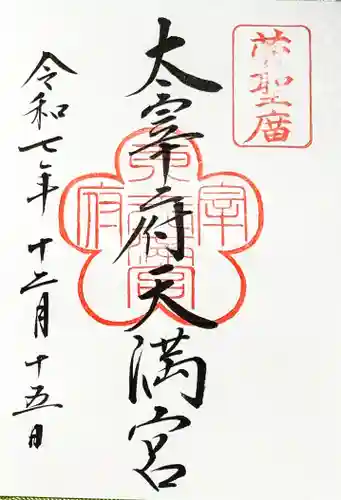 菅聖廟
太宰府天満宮
令和七年十二月十五日